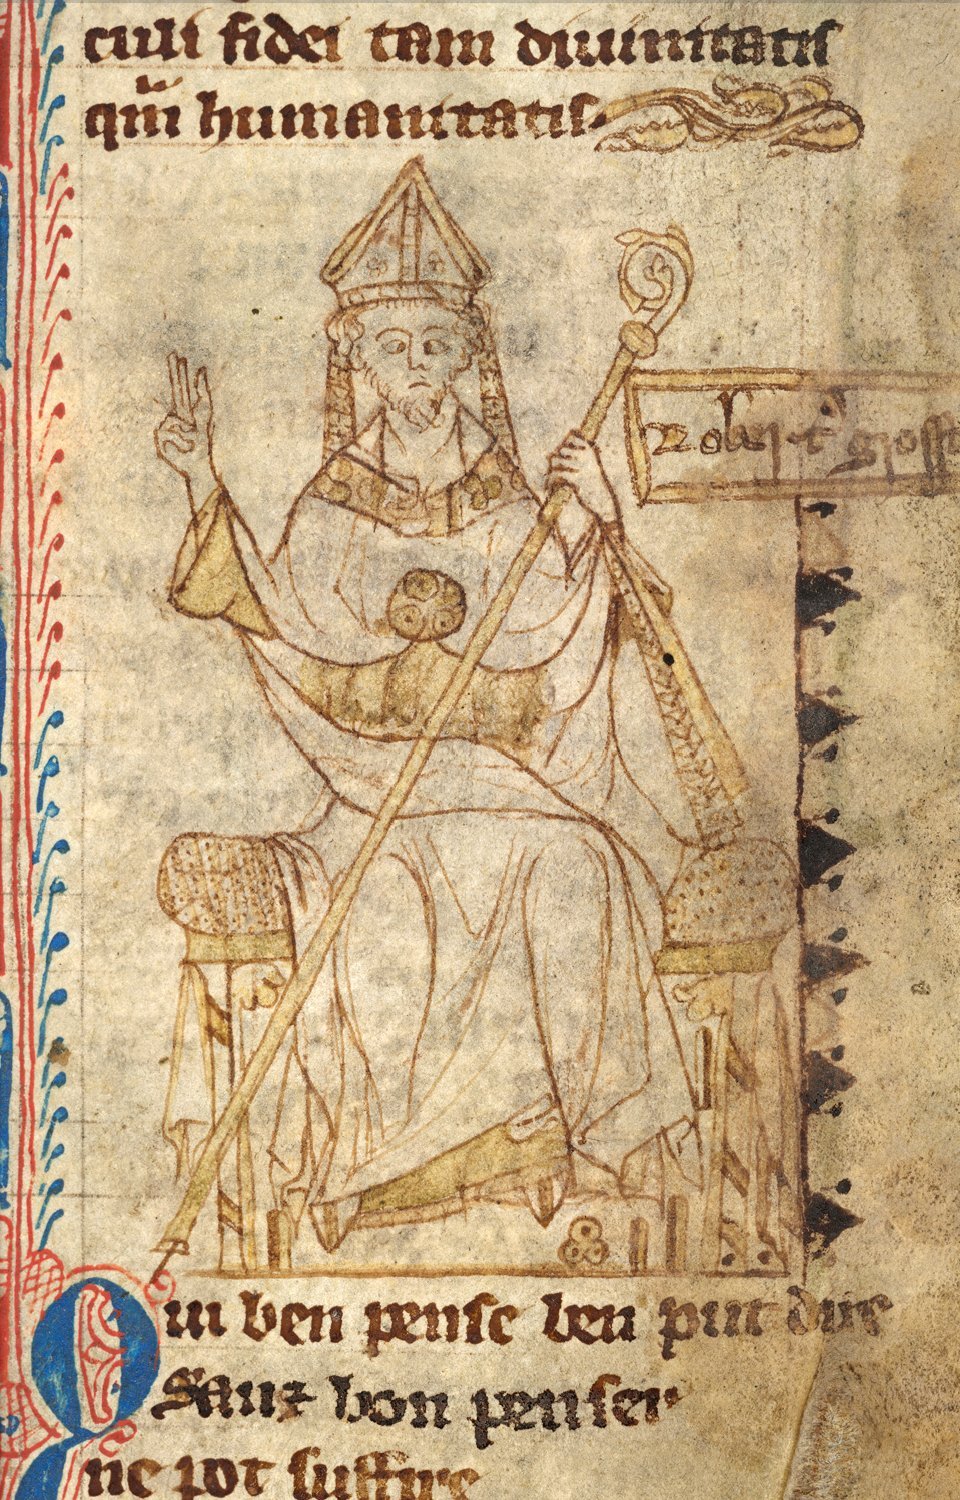 culi fidei tam diuinitatis
qͫ humanitatis
Robert grosst
Qui ben pense ben put dire
Sanz bon penser
ne pot suffire